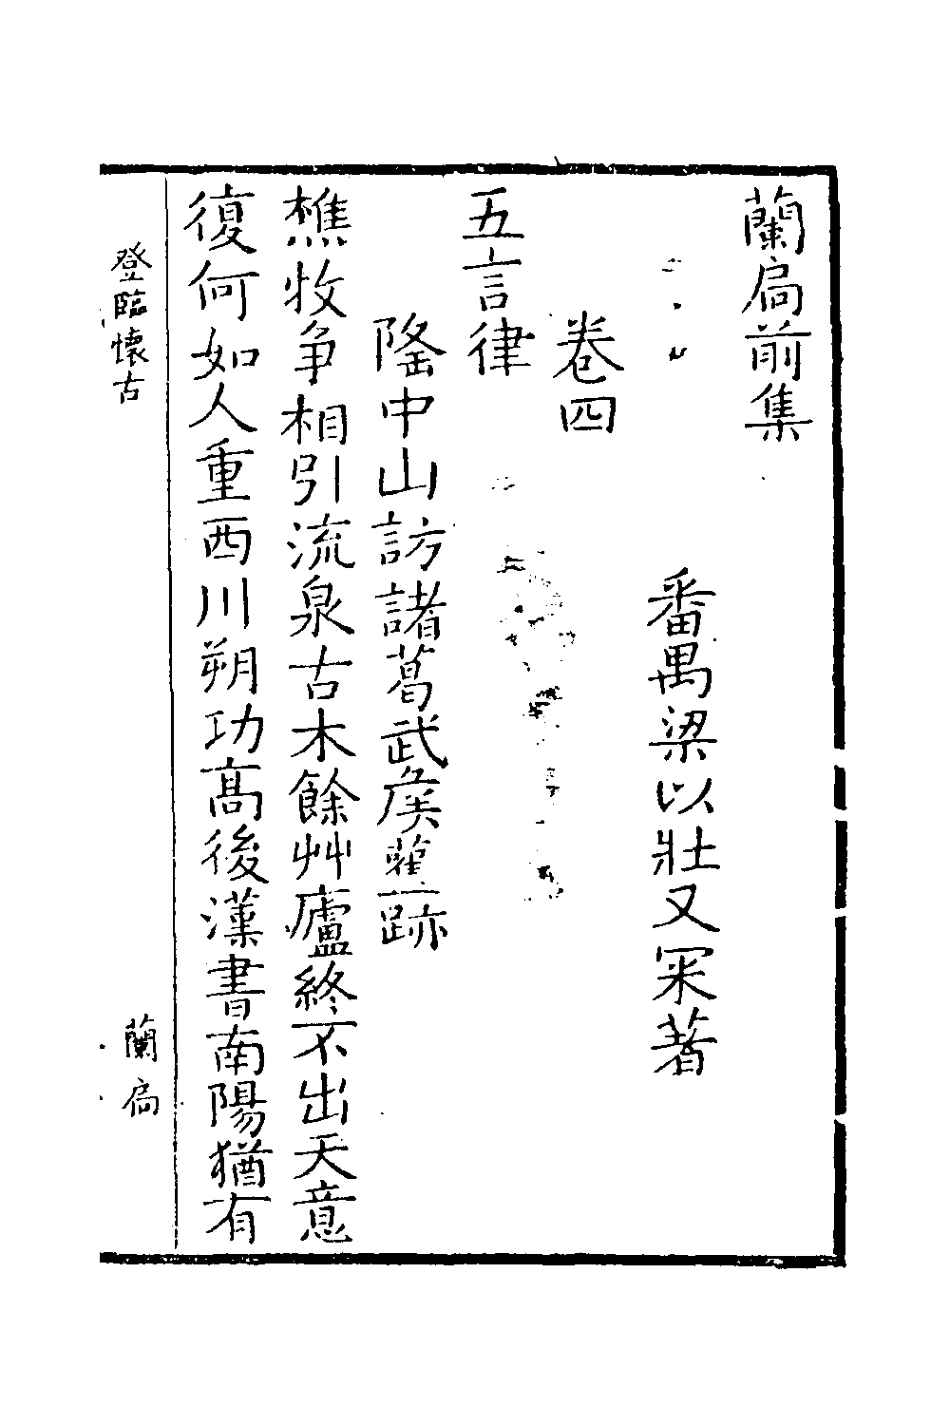 蘭扃前集
番禺梁以壯又罙著
卷四
五言律
隆中山訪諸葛武矦舊跡
樵牧争相引流泉古木餘艸廬終不出天意
復何如人重西川朔功髙後漢書南陽猶有
登臨懷古
蘭扃